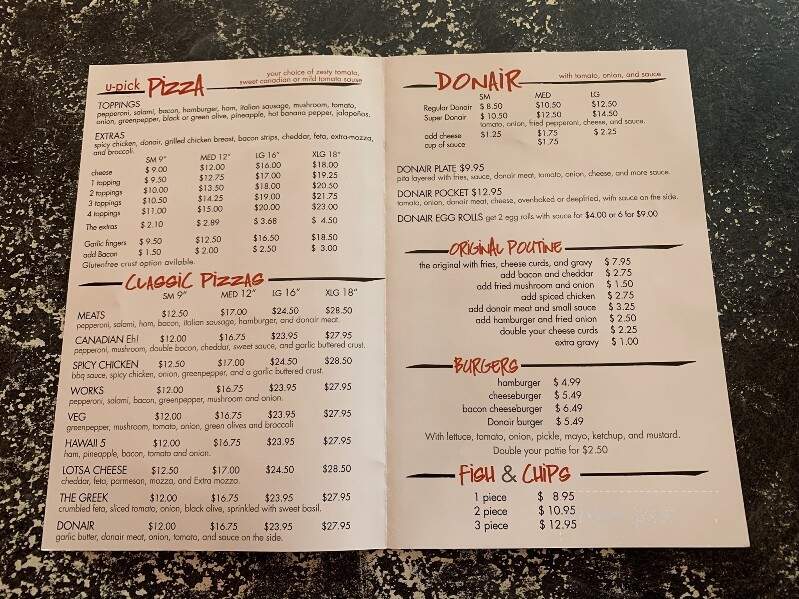 u-pick PIZZA
your choice of zesty tomato,
sweet canadian or mild tomato sauce
TOPPINGS
pepperoni, salami, bacon, hamburger, ham, italian sausage, mushroom, tomato,
onion, greenpepper, black or green olive, pineapple, hot banana pepper, jalapaños.
EXTRAS
spicy chicken, donair, grilled chicken breast, bacon strips, cheddar, feta, extra-mozza,
and broccoli.
SM 9" MED 12" LG 16" XLG 18"
cheese $ 9.00 $12.00 $16.00 $18.00
1 topping $ 9.50 $12.75 $17.00 $19.25
2 toppings $10.00 $13.50 $18.00 $20.50
3 toppings $10.50 $14.25 $19.00 $21.75
4 toppings $11.00 $15.00 $20.00 $23.00
The extras $ 2.10 $ 2.89 $ 3.68 $ 4.50
Garlic fingers $ 9.50 $12.50 $16.50 $18.50
add Bacon $ 1.50 $ 2.00 $ 2.50 $ 3.00
Glutenfree crust option avilable.
CLASSIC PIZZAS
SM 9" MED 12" LG 16" XLG 18"
MEATS $12.50 $17.00 $24.50 $28.50
pepperoni, salami, ham, bacon, italian sausage, hamburger, and donair meat.
CANADIAN Eh! $12.00 $16.75 $23.95 $27.95
pepperoni, mushroom, double bacon, cheddar, sweet sauce, and garlic buttered crust.
SPICY CHICKEN $12.50 $17.00 $24.50 $28.50
bbq sauce, spicy chicken, onion, greenpepper, and a garlic buttered crust.
WORKS $12.00 $16.75 $23.95 $27.95
pepperoni, salami, bacon, greenpepper, mushroom and onion.
VEG $12.00 $16.75 $23.95 $27.95
greenpepper, mushroom, tomato, onion, green olives and broccoli
HAWAII 5 $12.00 $16.75 $23.95 $27.95
ham, pineapple, bacon, tomato and onion.
LOTSA CHEESE $12.50 $17.00 $24.50 $28.50
cheddar, feta, parmesan, mozza, and Extra mozza.
THE GREEK $12.00 $16.75 $23.95 $27.95
crumbled feta, sliced tomato, onion, black olive, sprinkled with sweet basil.
DONAIR $12.00 $16.75 $23.95 $27.95
garlic butter, donair meat, onion, tomato, and sauce on the side.
DONAIR
with tomato, onion, and sauce
SM MED LG
Regular Donair $ 8.50 $10.50 $12.50
Super Donair $ 10.50 $12.50 $14.50
tomato, onion, fried pepperoni, cheese, and sauce.
add cheese $1.25 $1.75 $ 2.25
cup of sauce $1.75
DONAIR PLATE $9.95
pita layered with fries, sauce, donair meat, tomato, onion, cheese, and more sauce.
DONAIR POCKET $12.95
tomato, onion, donair meat, cheese, ovenbaked or deepfried, with sauce on the side.
DONAIR EGG ROLLS get 2 egg rolls with sauce for $4.00 or 6 for $9.00
ORIGINAL POUTINE
the original with fries, cheese curds, and gravy $ 7.95
add bacon and cheddar $ 2.75
add fried mushroom and onion $ 1.50
add spiced chicken $ 2.75
add donair meat and small sauce $ 3.25
add hamburger and fried onion $ 2.50
double your cheese curds $ 2.25
extra gravy $ 1.00
BURGERS
hamburger $ 4.99
cheeseburger $ 5.49
bacon cheeseburger $ 6.49
Donair burger $ 5.49
With lettuce, tomato, onion, pickle, mayo, ketchup, and mustard.
Double your pattie for $2.50
FISH & CHIPS
1 piece $ 8.95
2 piece $ 10.95
3 piece $ 12.95